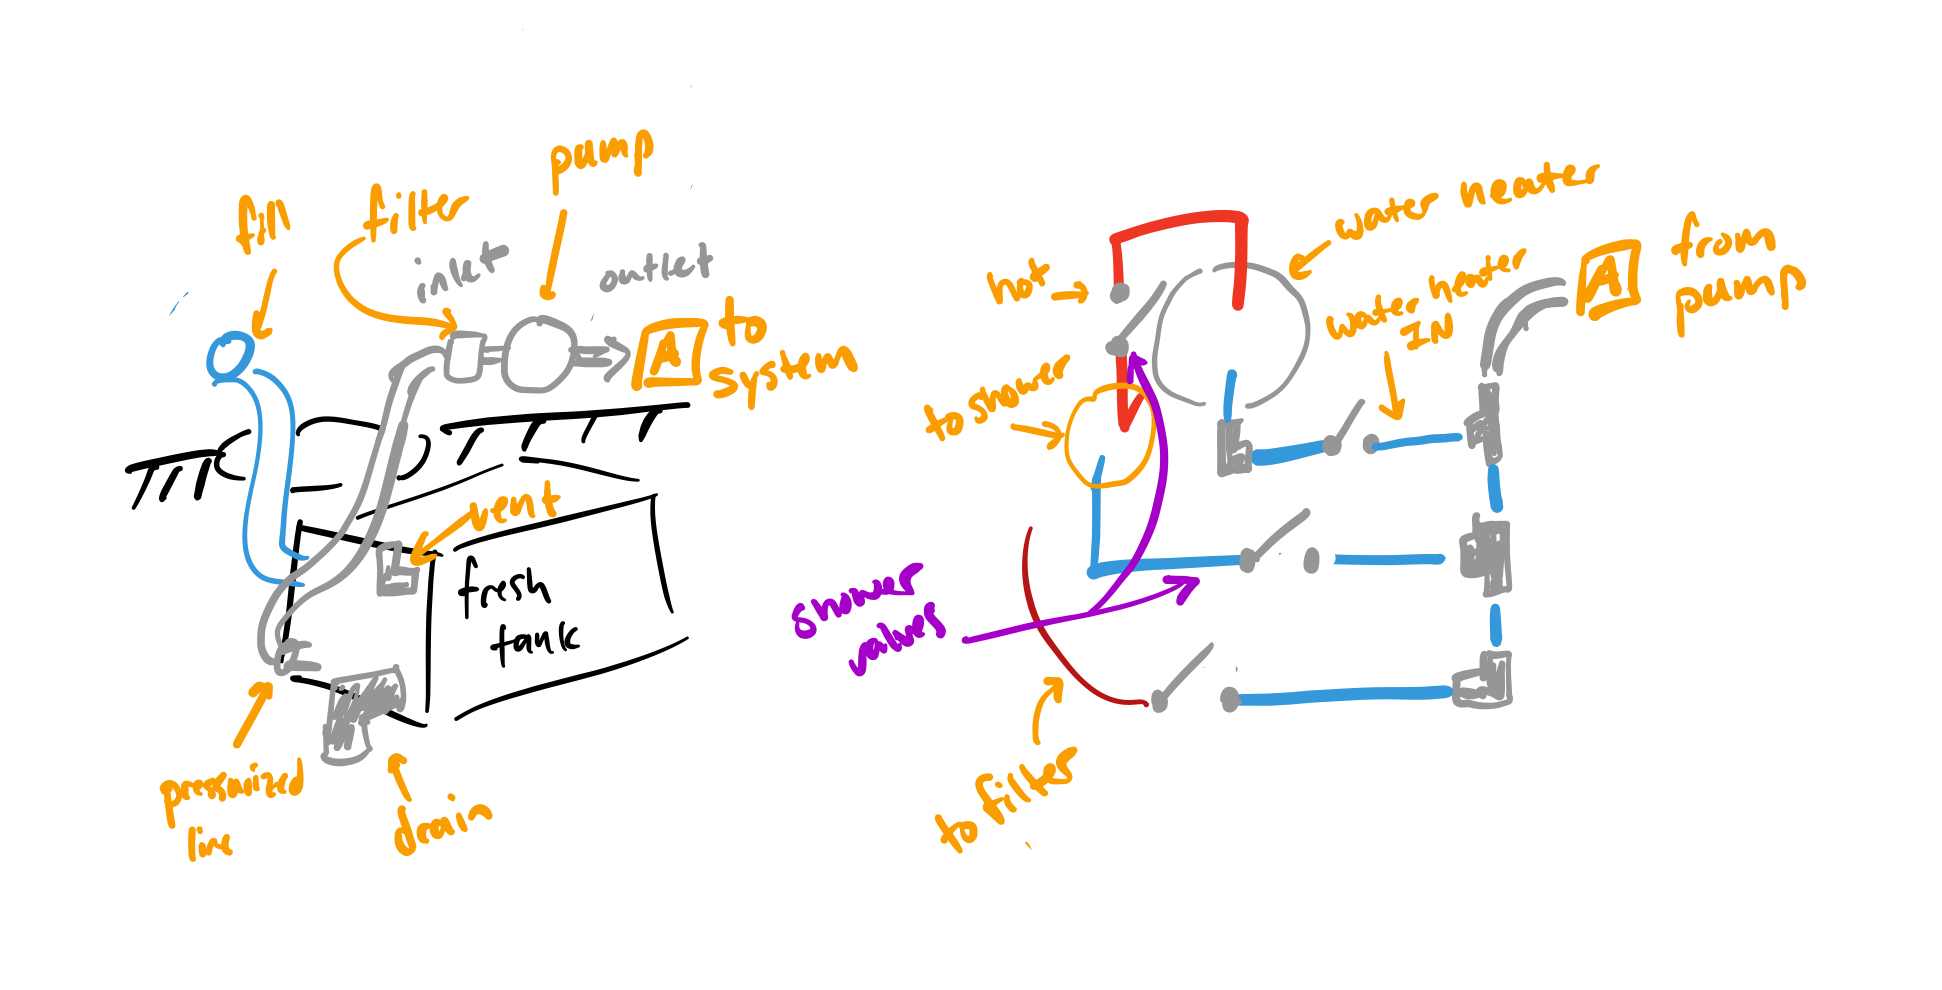 fill
filter
inlet
pump
outlet
A
to
system
vent
fresh
tank
pressurized
line
drain
hot
water heater
water heater
IN
A
from
pump
to shower
shower
valves
to filter